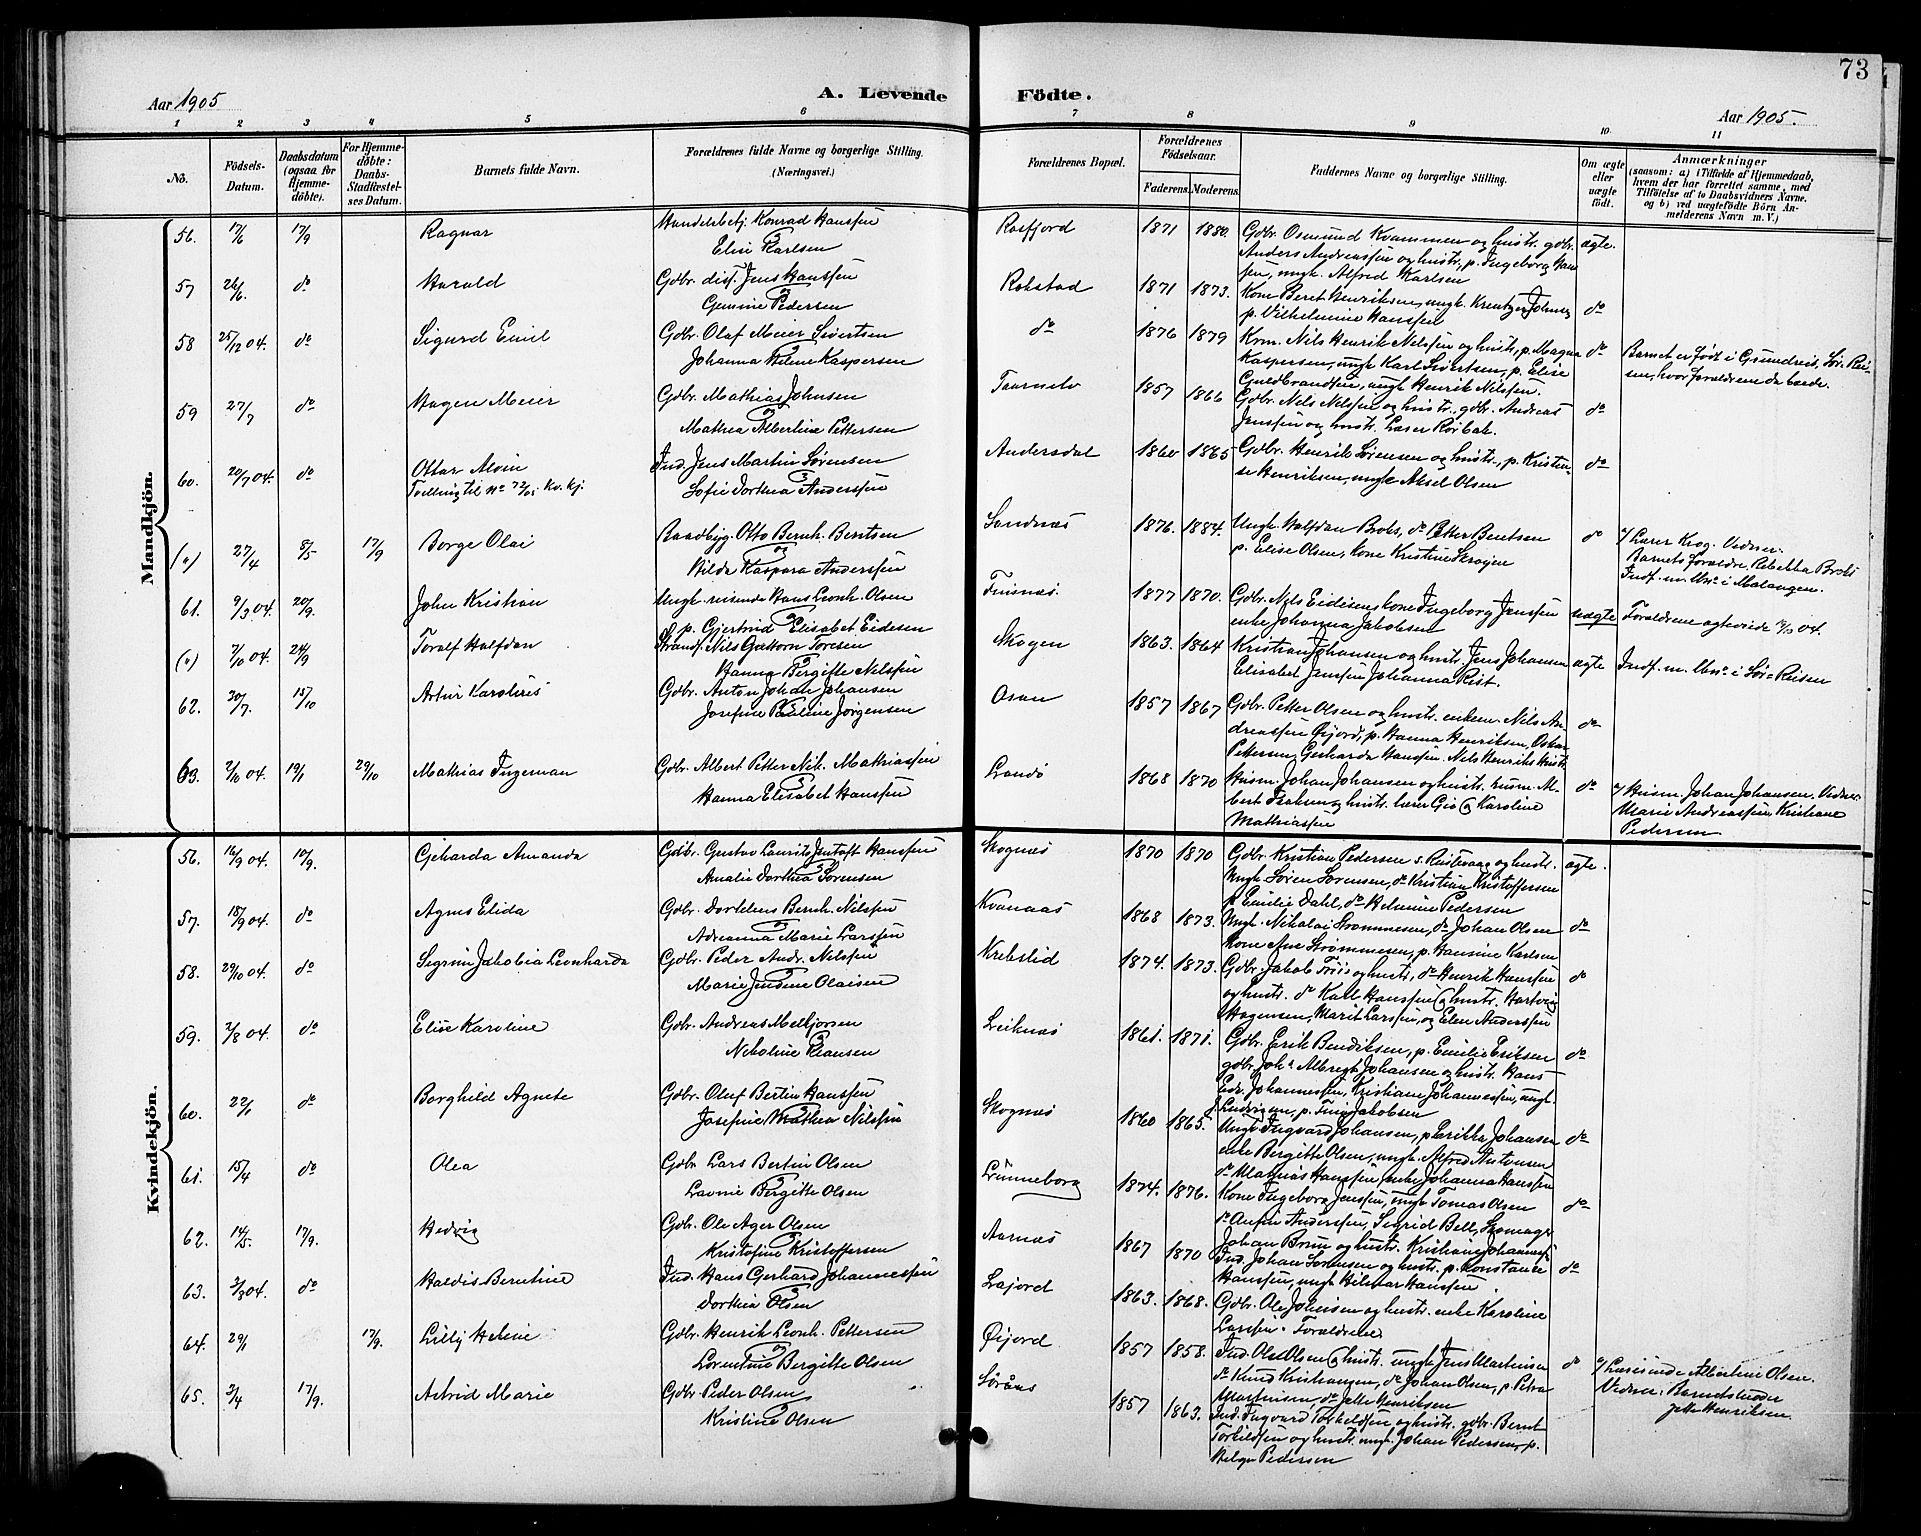 73
Aar 1905
A. Levende Födte.
Aar 1905.
1 2 3 4 5 6 7 8 9 10 11
No.
Födsels-Datum.
Daabsdatum (ogsaa for Hjemmedöbte).
For Hjemmedöbte: Daabs-Stadfæstelses Datum.
Barnets fulde Navn.
Forældrenes fulde Navne og borgerlige Stilling. (Næringsvei.)
Forældrenes Bopæl.
Forældrenes Födselsaar.
Faderens. Moderens.
Faddernes Navne og borgerlige Stilling.
Om ægte eller uægte födt.
Anmærkninger
(saasom: a) i Tilfælde af Hjemmedaab, hvem der har forrettet samme, med Tilföielse af to Daabsvidners Navne. og b) ved uægtefödte Börn Anmelderens Navn m. V.)
Mandkjön.
56. 17/6 17/9 Ragnar Handelsbetj. Konrad Hanssen Rossfjord 1871 1880. Gdbr. Osmund Kvammen og hustr. gdbr. ægte.
Elise Karlsen Anders Andreassen og hustr., p. Ingeborg Hanssen, ungk. Alfred Karlsen
57 26/6. do Harald Gdbr. Jens Hanssen Rokstad 1871 1873. Kone Beret Henriksen, ungk. Kreutzer Johnsen do
Pedersen p. Vilhelmine Hanssen
58 25/12 04. do Sigurd Emil Gdbr. Olaf Meier Sivertsen do 1876 1879 Nils Henrik Nilssen og hustr., p. Magna do Barnet er født i Grundreis, Sør-Reisen, hvor forældrene da boede.
Johanna Helene Kaspersen Kaspersen, ungk. Karl Sivertsen, p. Elise Guldbrandsen, ungk. Henrik Nilssen.
59 27/7 do Hagen Meier Gdbr. Mathias Johnsen Taarnelv 1857 1866 Gdbr. Nels Nelssen og hustr. gdbr. Andreas do
Mathea Albertine Pettersen Jenssen og hustr. Lærer Rørbak.
60. 20/7 04. do Ottar Alvin Ind. Jens Martin Sørensen Andersdal 1860 1865 Gdbr. Henrik Sørensen og hustr., p. Kristense do
Tvilling til No 72/05 Kv. kj. Sofie Dorthea Anderssen Henriksen, ungk. Aksel Olsen
(") 27/4 8/5 17/9 Borge Olai Baadbyg. Otto Bernh. Berntsen Sandnæs 1876. 1884. Ungk. Halfdan Broks, do Petter Bentsen do Lærer Krog. Vidner: Barnets forældre, Rebekka Broks
Hilda Kaspara Anderssen p. Elise Olsen, kone Kristine Skogen Indf. m. Uno. i Malangen.
61. 9/3 04. 20/9. John Kristian Ungk. reisende Hans Leonh. Olsen Finsnæs. 1877 1870. Gdbr. Nels Eidisens kone Ingeborg Jenssen uægte Forældrene ægteviede 04.
p. Gjertrud Elisabet Eidesen enke Johanna Jakobsen
(") 7/10 04. 24/9 Toralf Halfdan Strands. Nils Toresen Skogen 1863. 1864 Kristian Johansen og hustr. Jens Johansen ægte Indf. m. Uno. i Sør-Reisen
Hanna Bergitte Nilssen Elisabet Jenssen Johanna Rist.
62. 30/7. 15/10 Artur Karolius Gdbr. Anton Johan Johansen Osan 1857 1867 Gdbr. Petter Olsen og hustr. enkem. Nils Andreassen do
Josefine Pauline Jørgensen Øijord, p. Hanna Henriksen, Oskar Pettersen, Gerharda Hanssen. Nils Henriks hustr.
63. 2/10 04. 19/1 29/10 Mathias Ingeman Gdbr. Albert Petter Nik. Mathiassen 1868 1870 Husm. Johan Johansen og hustr. husm. do Husm. Johan Johansen. Vidner:
Hanna Elisabet Hanssen og hustr. lærer Karoline Mathiassen Marie Andreassen, Kristiane Pedersen
Kvindekjön.
56. 16/9 04. 10/9. Gjeharda Amanda Gdbr. Gustav Laurits Jentoft Hanssen Skognæs 1870 1870 Gdbr. Kristian Pedersen s. og hustr. ægte.
Amalie Dorthea Sørensen Ungk. Søren Sørensen, do Kristian Kristoffersen p. Emilie Dahl, do Helmine Pedersen
57. 18/9 04. do Agnes Elida Gdbr. Bernh. Nilssen Kvanaas 1868 1873. Ungk. Nikolai Strømmesen, do Johan Olsen do
Adrianna Marie Larssen Kone Ane Strømmesen, p. Hansine Karlsen
58. 29/10 04. do Sigrun Jakobia Leonharda Gdbr. Peder Andr. Nilssen Krebslid 1874. 1873. Gdbr. Jakob og hustr., do Henrik Hanssen do
Marie Jensine Olaisen og hustr. do Karl Hanssen og hustr. Hartvig Hagensen, Marit Larssen, og Elen Anderssen
59. 2/8 04. do Elise Karoline Gdbr. Andreas Melkjorsen Leiknæs 1861. 1871. Gdbr. Erik Bendiksen, p. Emilie Eriksen do
Nikoline Klausen gdbr. Albregt Johansen og hustr. Hans
60. 22/1 do Borghild Agnete Gdbr. Oluf Bertin Hanssen Skognæs 1860 1865. Johannessen, Kristiane Johannessen, ungk. Ludvigsen, p. Jakobsen do
Josefine Mathea Nilssen Ungk. Ingvard Johansen, p. Erikka Johansen enke Bergitte Olsen, ungk. Alfred Antonsen do Mathias Hanssen, enke Johanna Hanssen
61. 15/4 do Olea Gdbr. Lars Bertin Olsen Lünneborg 1874. 1876. Kone Ingeborg Jenssen, ungk. Tomas Olsen do
Lavine Bergitte Olsen do Anfin Anderssen, Sigrid Bell, skomager
62. 14/5. 17/9. Hedvig Gdbr. Ole Ager Olsen Aarnæs 1867 1870 Johan Brun og hustr. Kristiane Johannessen
Kristofine Kristoffersen Ind. Johan Sørensen og hustr. p. Konstance do Hanssen, ungk. Hilmar Hanssen
63. 3/8 04. do Haldis Berntine Ind. Hans Gerhard Johannessen Lajord 1863. 1868. Gdbr. Ole Johnsen og hustr. enke Karoline
Dorthea Olsen Larssen. Forældrene
64. 29/1 17/9. Lilly Helene Gdbr. Henrik Leonh. Pettersen Øijord 1857 1858. Ind. Ole Olsen og hustr. ungk. Jens Martinsen do Læreinde Albertine Olsen. Vidner: Barnets moder
Lorentine Bergitte Olsen do Knud Kristiansen, do Johan Olsen, p. Petra Martinsen, do Jette Henriksen Jette Henriksen.
65. 3/4 17/9. Astrid Marie Gdbr. Peder Olsen 1857 1863. Ind. Ingvard Torkildsen og hustr. gdbr. Bernt
Kristine Olsen Torkildsen og hustr. ungk. Johan Pedersen, p. Helga Pedersen